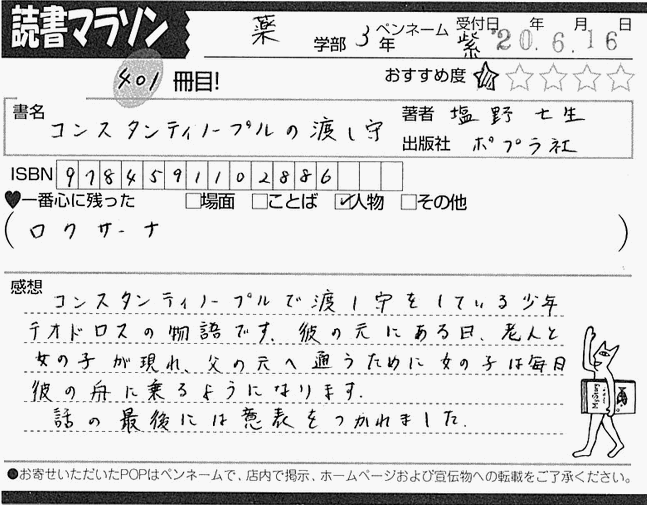 読書マラソン
薬 学部 3年 ペンネーム 紫 受付日 '20年 6月 16日
401 冊目!
おすすめ度 ★☆☆☆☆
書名 コンスタンティノープルの渡し守
著者 塩野七生
出版社 ポプラ社
ISBN 9784591102886
♥一番心に残った □場面 □ことば ☑人物 □その他
(ロクサーナ)
感想
コンスタンティノープルで渡し守をしている少年
テオドロスの物語です。彼の元にある日、老人と
女の子が現れ、父の元へ通うために女の子は毎日
彼の舟に乗るようになります。
話の最後には意表をつかれました。
●お寄せいただいたPOPはペンネームで、店内で掲示、ホームページおよび宣伝物への転載をご了承ください。